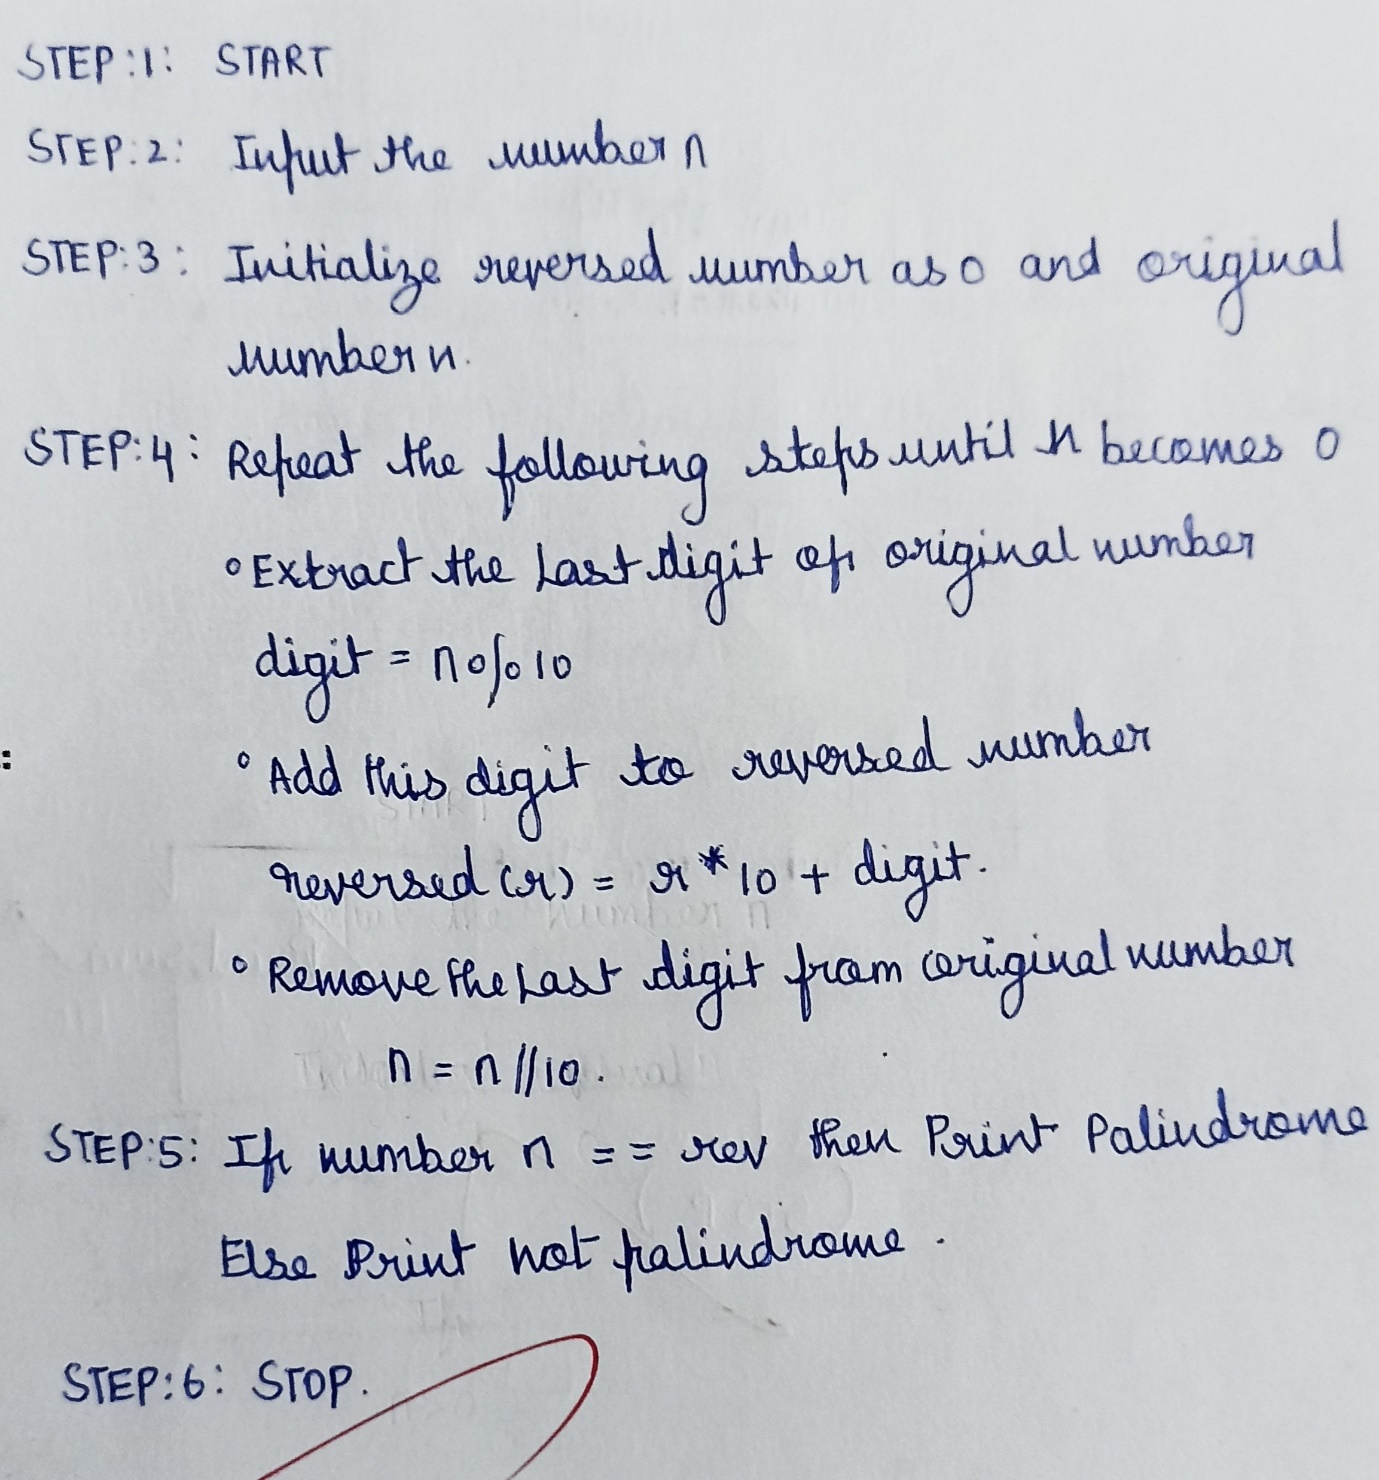 STEP:1: START
STEP:2: Input the number n
STEP:3: Initialize reversed number as 0 and original
number n.
STEP:4: Repeat the following steps until n becomes 0
° Extract the Last digit of original number
digit = n%10
:
° Add this digit to reversed number
reversed (r) = r * 10 + digit.
° Remove the Last digit from original number
n = n//10.
STEP:5: If number n == rev then Print Palindrome
Else Print not palindrome.
STEP:6: STOP.